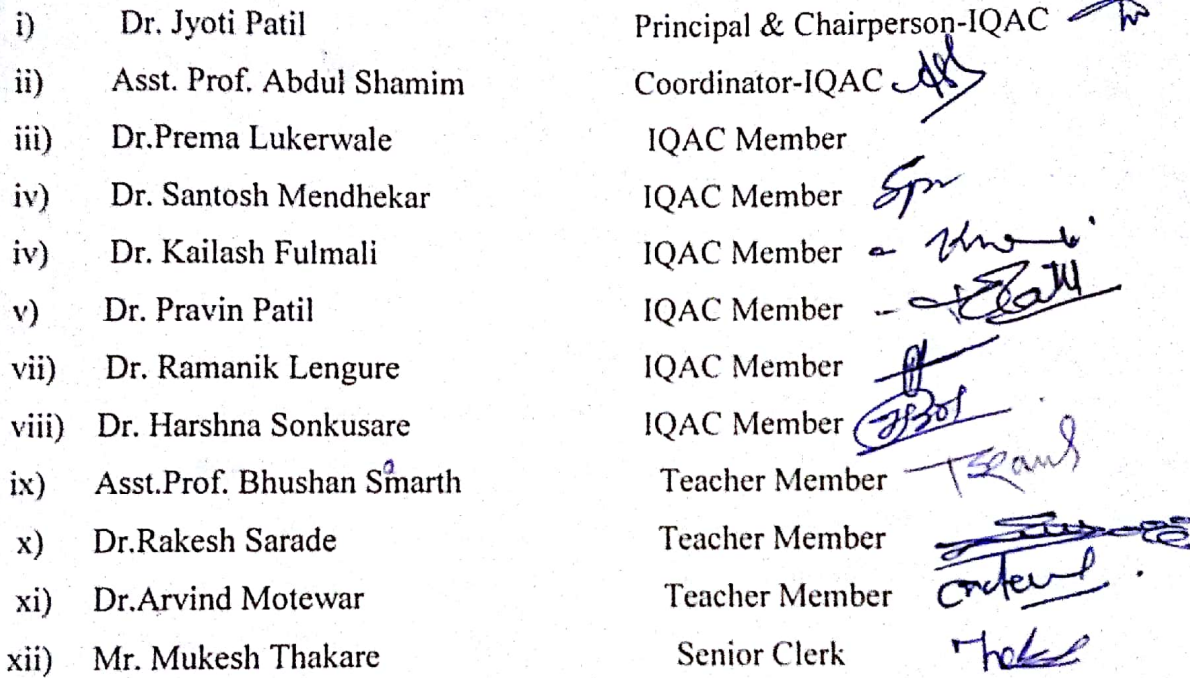 i) Dr. Jyoti Patil Principal & Chairperson-IQAC
ii) Asst. Prof. Abdul Shamim Coordinator-IQAC
iii) Dr.Prema Lukerwale IQAC Member
iv) Dr. Santosh Mendhekar IQAC Member
iv) Dr. Kailash Fulmali IQAC Member
v) Dr. Pravin Patil IQAC Member
vii) Dr. Ramanik Lengure IQAC Member
viii) Dr. Harshna Sonkusare IQAC Member
ix) Asst.Prof. Bhushan Smarth Teacher Member
x) Dr.Rakesh Sarade Teacher Member
xi) Dr.Arvind Motewar Teacher Member
xii) Mr. Mukesh Thakare Senior Clerk